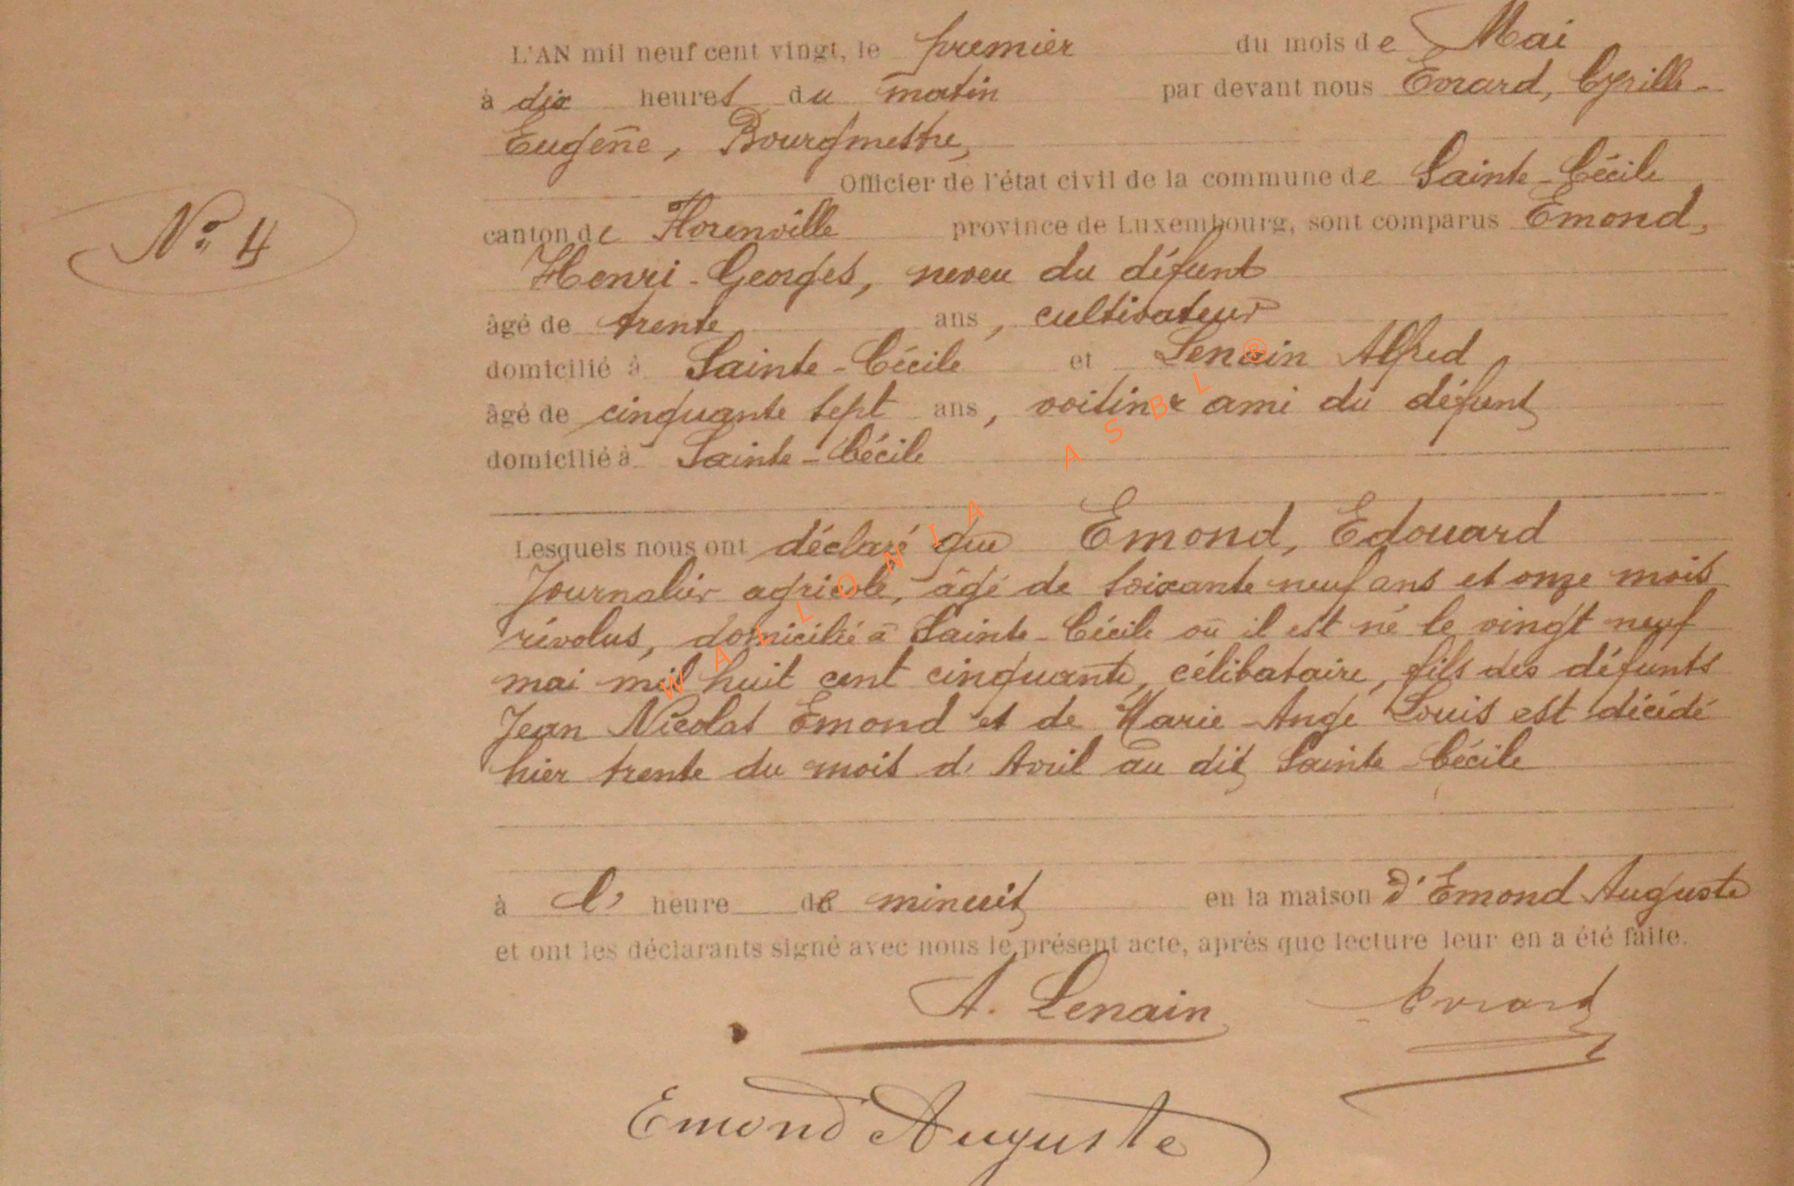 L'AN mil neuf cent vingt, le premier du mois de Mai
à dix heures du matin par devant nous Evrard, Cyrille-
Eugène, Bourgmestre,
Officier de l'état civil de la commune de Sainte-Cécile
N° 4
canton de Florenville province de Luxembourg, sont comparus Emond,
Henri-Georges, neveu du défunt
âgé de trente ans, cultivateur
domicilié à Sainte-Cécile et Lenain Alfred
âgé de cinquante sept ans, ami du défunt
domicilié à Sainte-Cécile
Lesquels nous ont déclaré que Emond, Edouard
Journalier agricole, âgé de soixante neuf ans et onze mois
révolus, domicilié à Sainte-Cécile où il est né le vingt neuf
mai mil huit cent cinquante, célibataire, fils des défunts
Jean Nicolas Emond et de Marie-Ange Louis est décédé
hier trente du mois d'Avril au dit Sainte-Cécile
à l' heure de minuit en la maison d'Emond Auguste
et ont les déclarants signé avec nous le présent acte, après que lecture leur en a été faite.
A. Lenain Evrard
Emond Auguste
WALLONIA ASBL ©